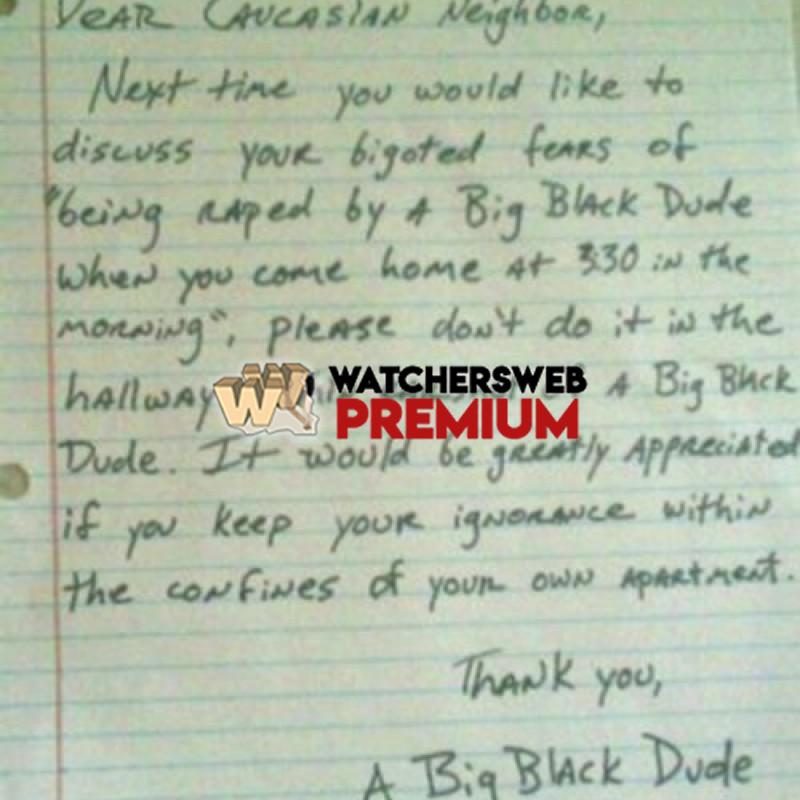 Dear Caucasian Neighbor,
Next time you would like to
discuss your bigoted fears of
"being raped by a Big Black Dude
when you come home at 3:30 in the
morning", please don't do it in the
hallway a Big Black
WATCHERSWEB
PREMIUM
Dude. It would be greatly appreciated
if you keep your ignorance within
the confines of your own apartment.
Thank you,
A Big Black Dude